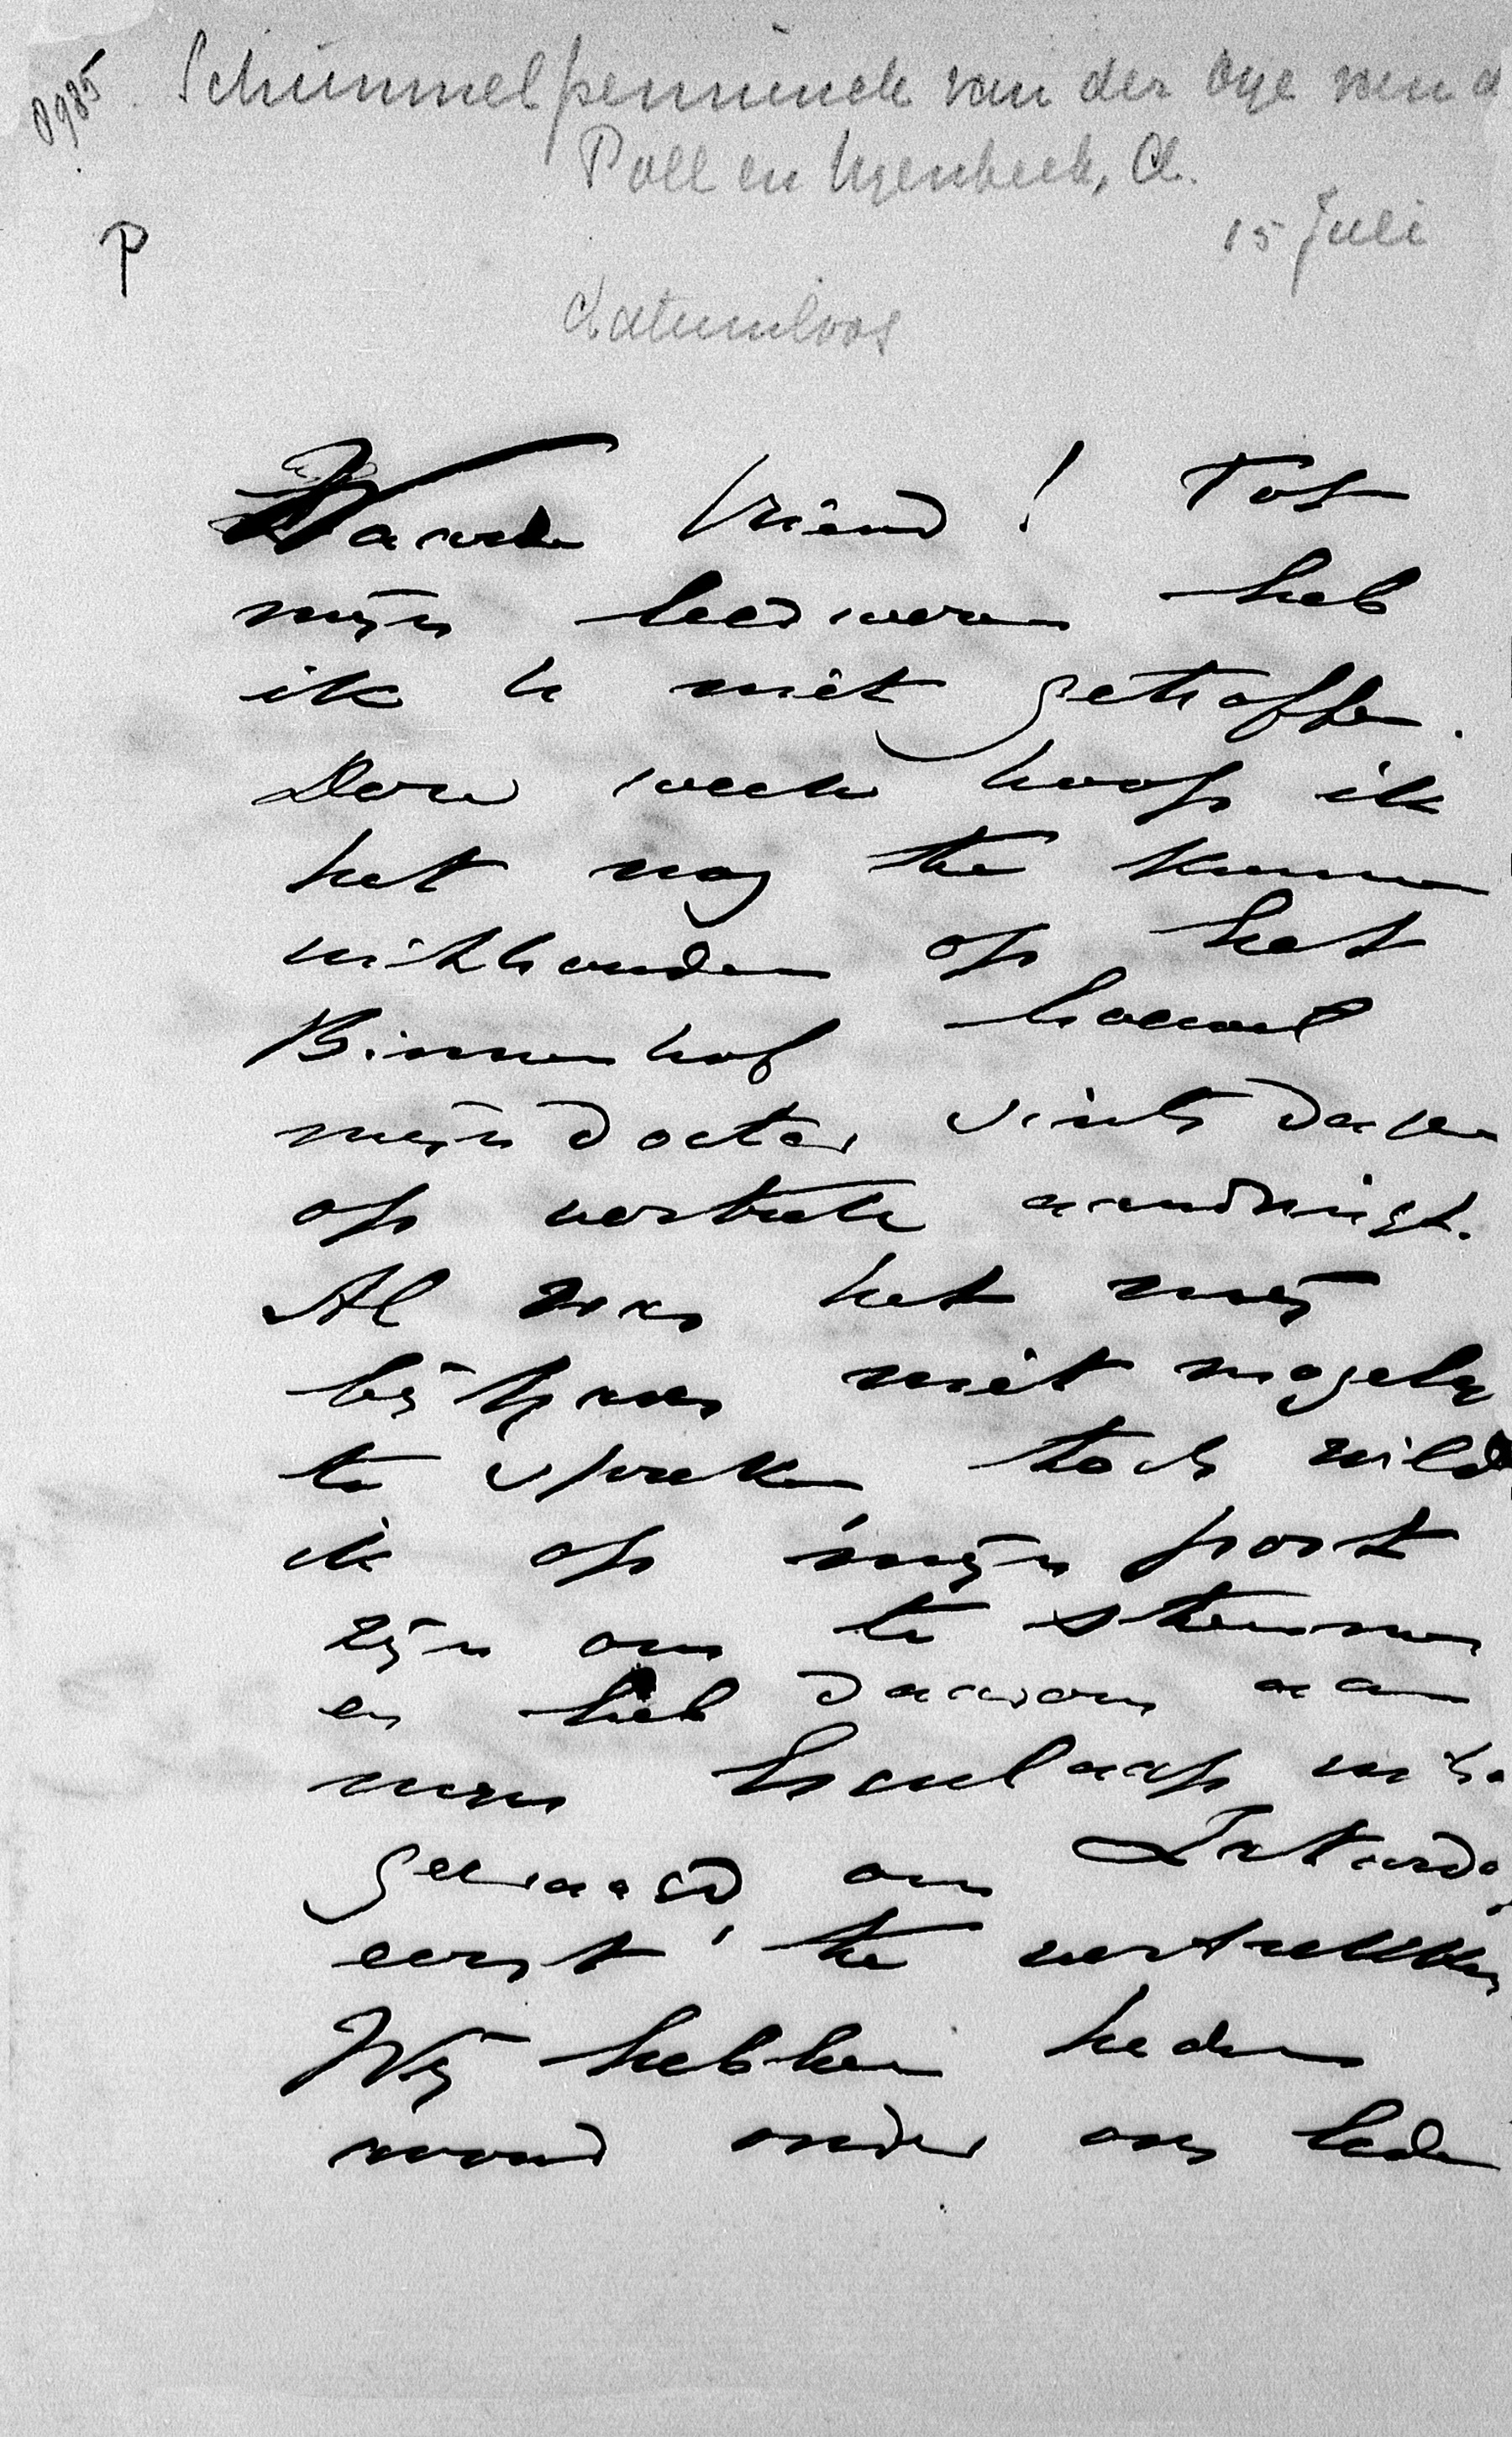 0985
Schimmelpenninck van der Oye van d
Poll en Nyenbeek, A.
15 Juli
P
datumloos
Waarde Vriend! Tot
mijn leedwezen heb
ik U niet getroffen.
Deze week hoop ik
het nog te kunnen
uithouden op het
Binnenhof hoewel
mijn doctor sinds dagen
op vertrek aandringt.
Al was het mij
bij thans niet mogelijk
te spreken toch wilde
ik op mijn post
zijn om te stemmen
en heb daarom aan
mijn
om Zaturdag
eerst te vertrekken
Wij hebben heden
avond onder ons leden